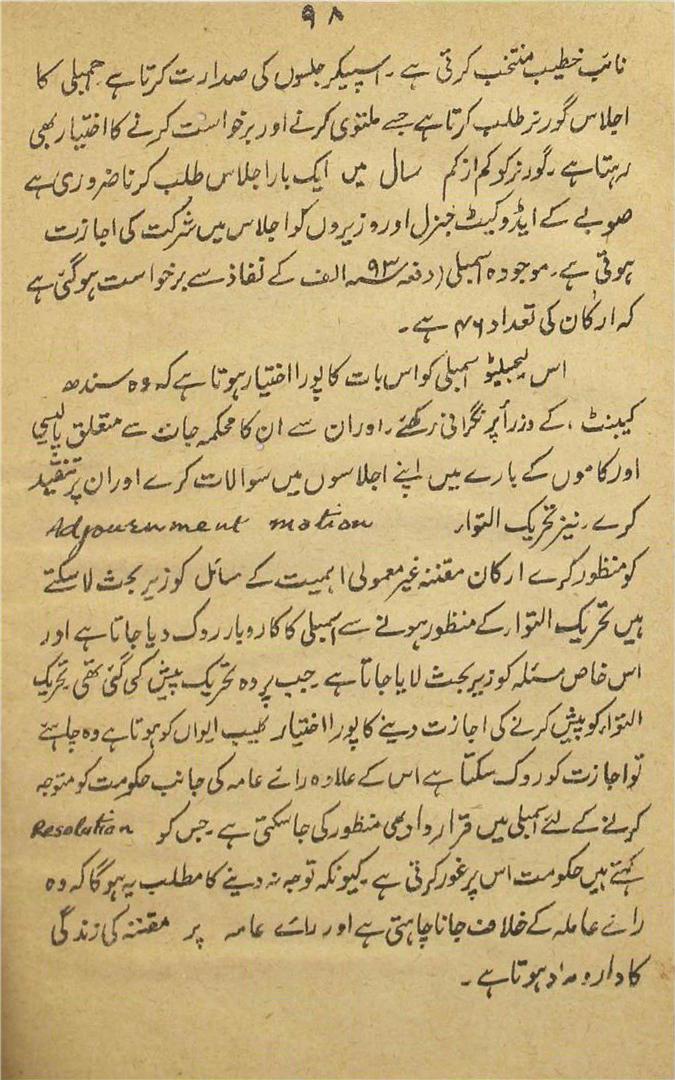 ۹۸
نائب خطیب منتخب کرتی ہے۔ اسپیکر جلسوں کی صدارت کرتا ہے۔ اسمبلی کا
اجلاس گورنر طلب کرتا ہے جسے ملتوی کرنے اور برخواست کرنے کا اختیار بھی
رہتا ہے۔ گورنر کو کم از کم سال میں ایک بار اجلاس طلب کرنا ضروری ہے
صوبے کے ایڈوکیٹ جنرل اور وزیروں کو اجلاس میں شرکت کی اجازت
ہوتی ہے۔ موجودہ اسمبلی (دفعہ ۹۳ الف کے نفاذ سے برخواست ہوگئی ہے
کہ ارکان کی تعداد ۴۶ ہے۔
اس لیجبلیٹو اسمبلی کو اس بات کا پورا اختیار ہوتا ہے کہ وہ سندھ
کیبنٹ، کے وزرأ پر نگرانی رکھے۔ اور ان سے ان کا محکمہ جات سے متعلق پالیسی
اور کاموں کے بارے میں اپنے اجلاسوں میں سوالات کرے اور ان پر تنقید
کرے۔ نیز تحریک التوار Adjournment motion
کو منظور کرے ارکان مقننہ غیر معمولی اہمیت کے مسائل کو زیر بحث لا سکتے
ہیں تحریک التوار کے منظور ہونے سے اسمبلی کا کاروبار روک دیا جاتا ہے اور
اس خاص مسئلہ کو زیر بحث لایا جاتا ہے۔ جب پر وہ تحریک پیش کی گئی تھی۔ تحریک
التوار کو پیش کرنے کی اجازت دینے کا پورا اختیار خطیب ایوان کو ہوتا ہے وہ چاہئے
تو اجازت کو روک سکتا ہے اس کے علاوہ رائے عامہ کی جانب حکومت کو متوجہ
کرنے کے لئے اسمبلی میں قرار داد بھی منظور کی جا سکتی ہے۔ جس کو Resolution
کہتے ہیں حکومت اس پر غور کرتی ہے۔ کیونکہ توجہ نہ دینے کا مطلب یہ ہوگا کہ وہ
رائے عاملہ کے خلاف جانا چاہتی ہے اور رائے عامہ پر مقننہ کی زندگی
کا دارومدار ہوتا ہے۔